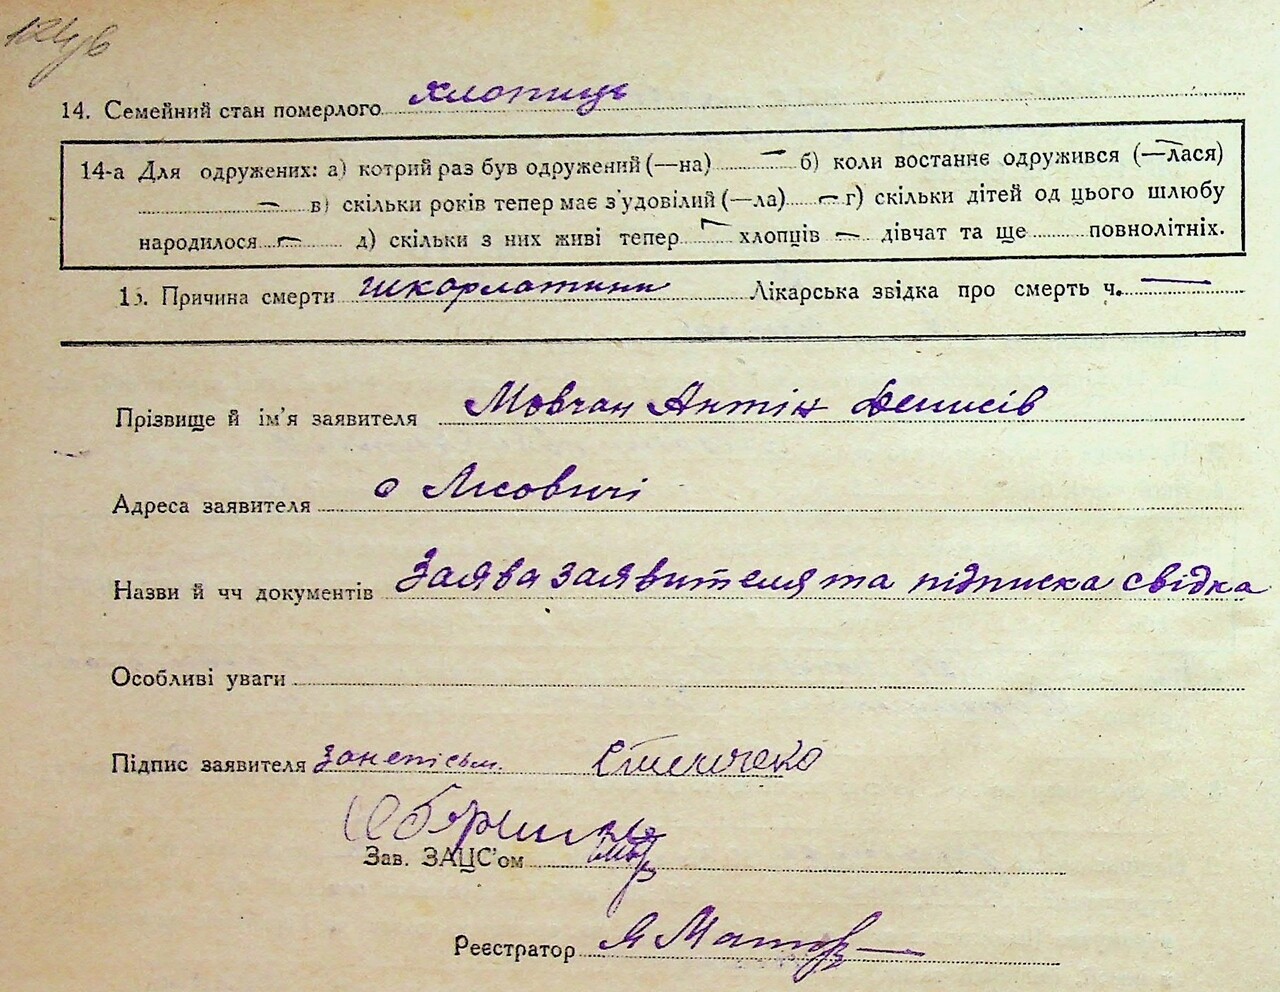 14. Семейний стан померлого хлопиць
14-а Для одружених: а) котрий раз був одружений (—на) — б) коли востаннє одружився (—лася)
— в) скільки років тепер має з'удовілий (—ла) — г) скільки дітей од цього шлюбу
народилося — д) скільки з них живі тепер — хлопців — дівчат та ще повнолітніх.
15. Причина смерти шкарлатини Лікарська звідка про смерть ч. —
Прізвище й ім'я заявителя Мовчан Антін Денисів
Адреса заявителя с Лисовичі
Назви й чч документів Заява заявителя та підписка свідка
Особливі уваги
Підпис заявителя За неписьм.
Зав. ЗАЦС'ом
Реєстратор